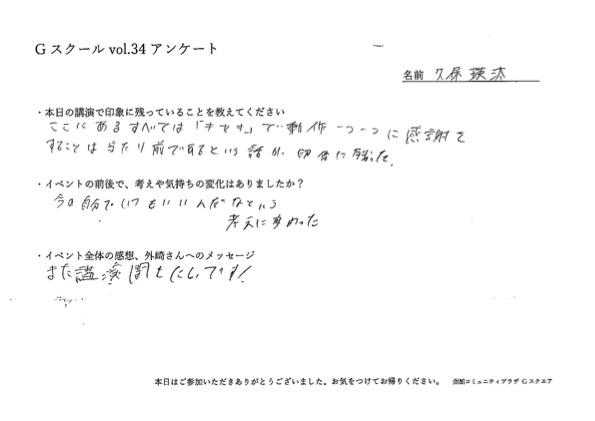 Gスクール vol.34 アンケート
名前 久保 瑛
・本日の講演で印象に残っていることを教えてください
ここにあるすべては「キセキ」で動作一つ一つに感謝を
することは当たり前であるという話が印象に残った。
・イベントの前後で、考えや気持ちの変化はありましたか？
今の自分でいてもいいんだなという
考えに変わった
・イベント全体の感想、外崎さんへのメッセージ
また講演聞きたいです！
本日はご参加いただきありがとうございました。お気をつけてお帰りください。 函館コミュニティプラザ Gスクエア